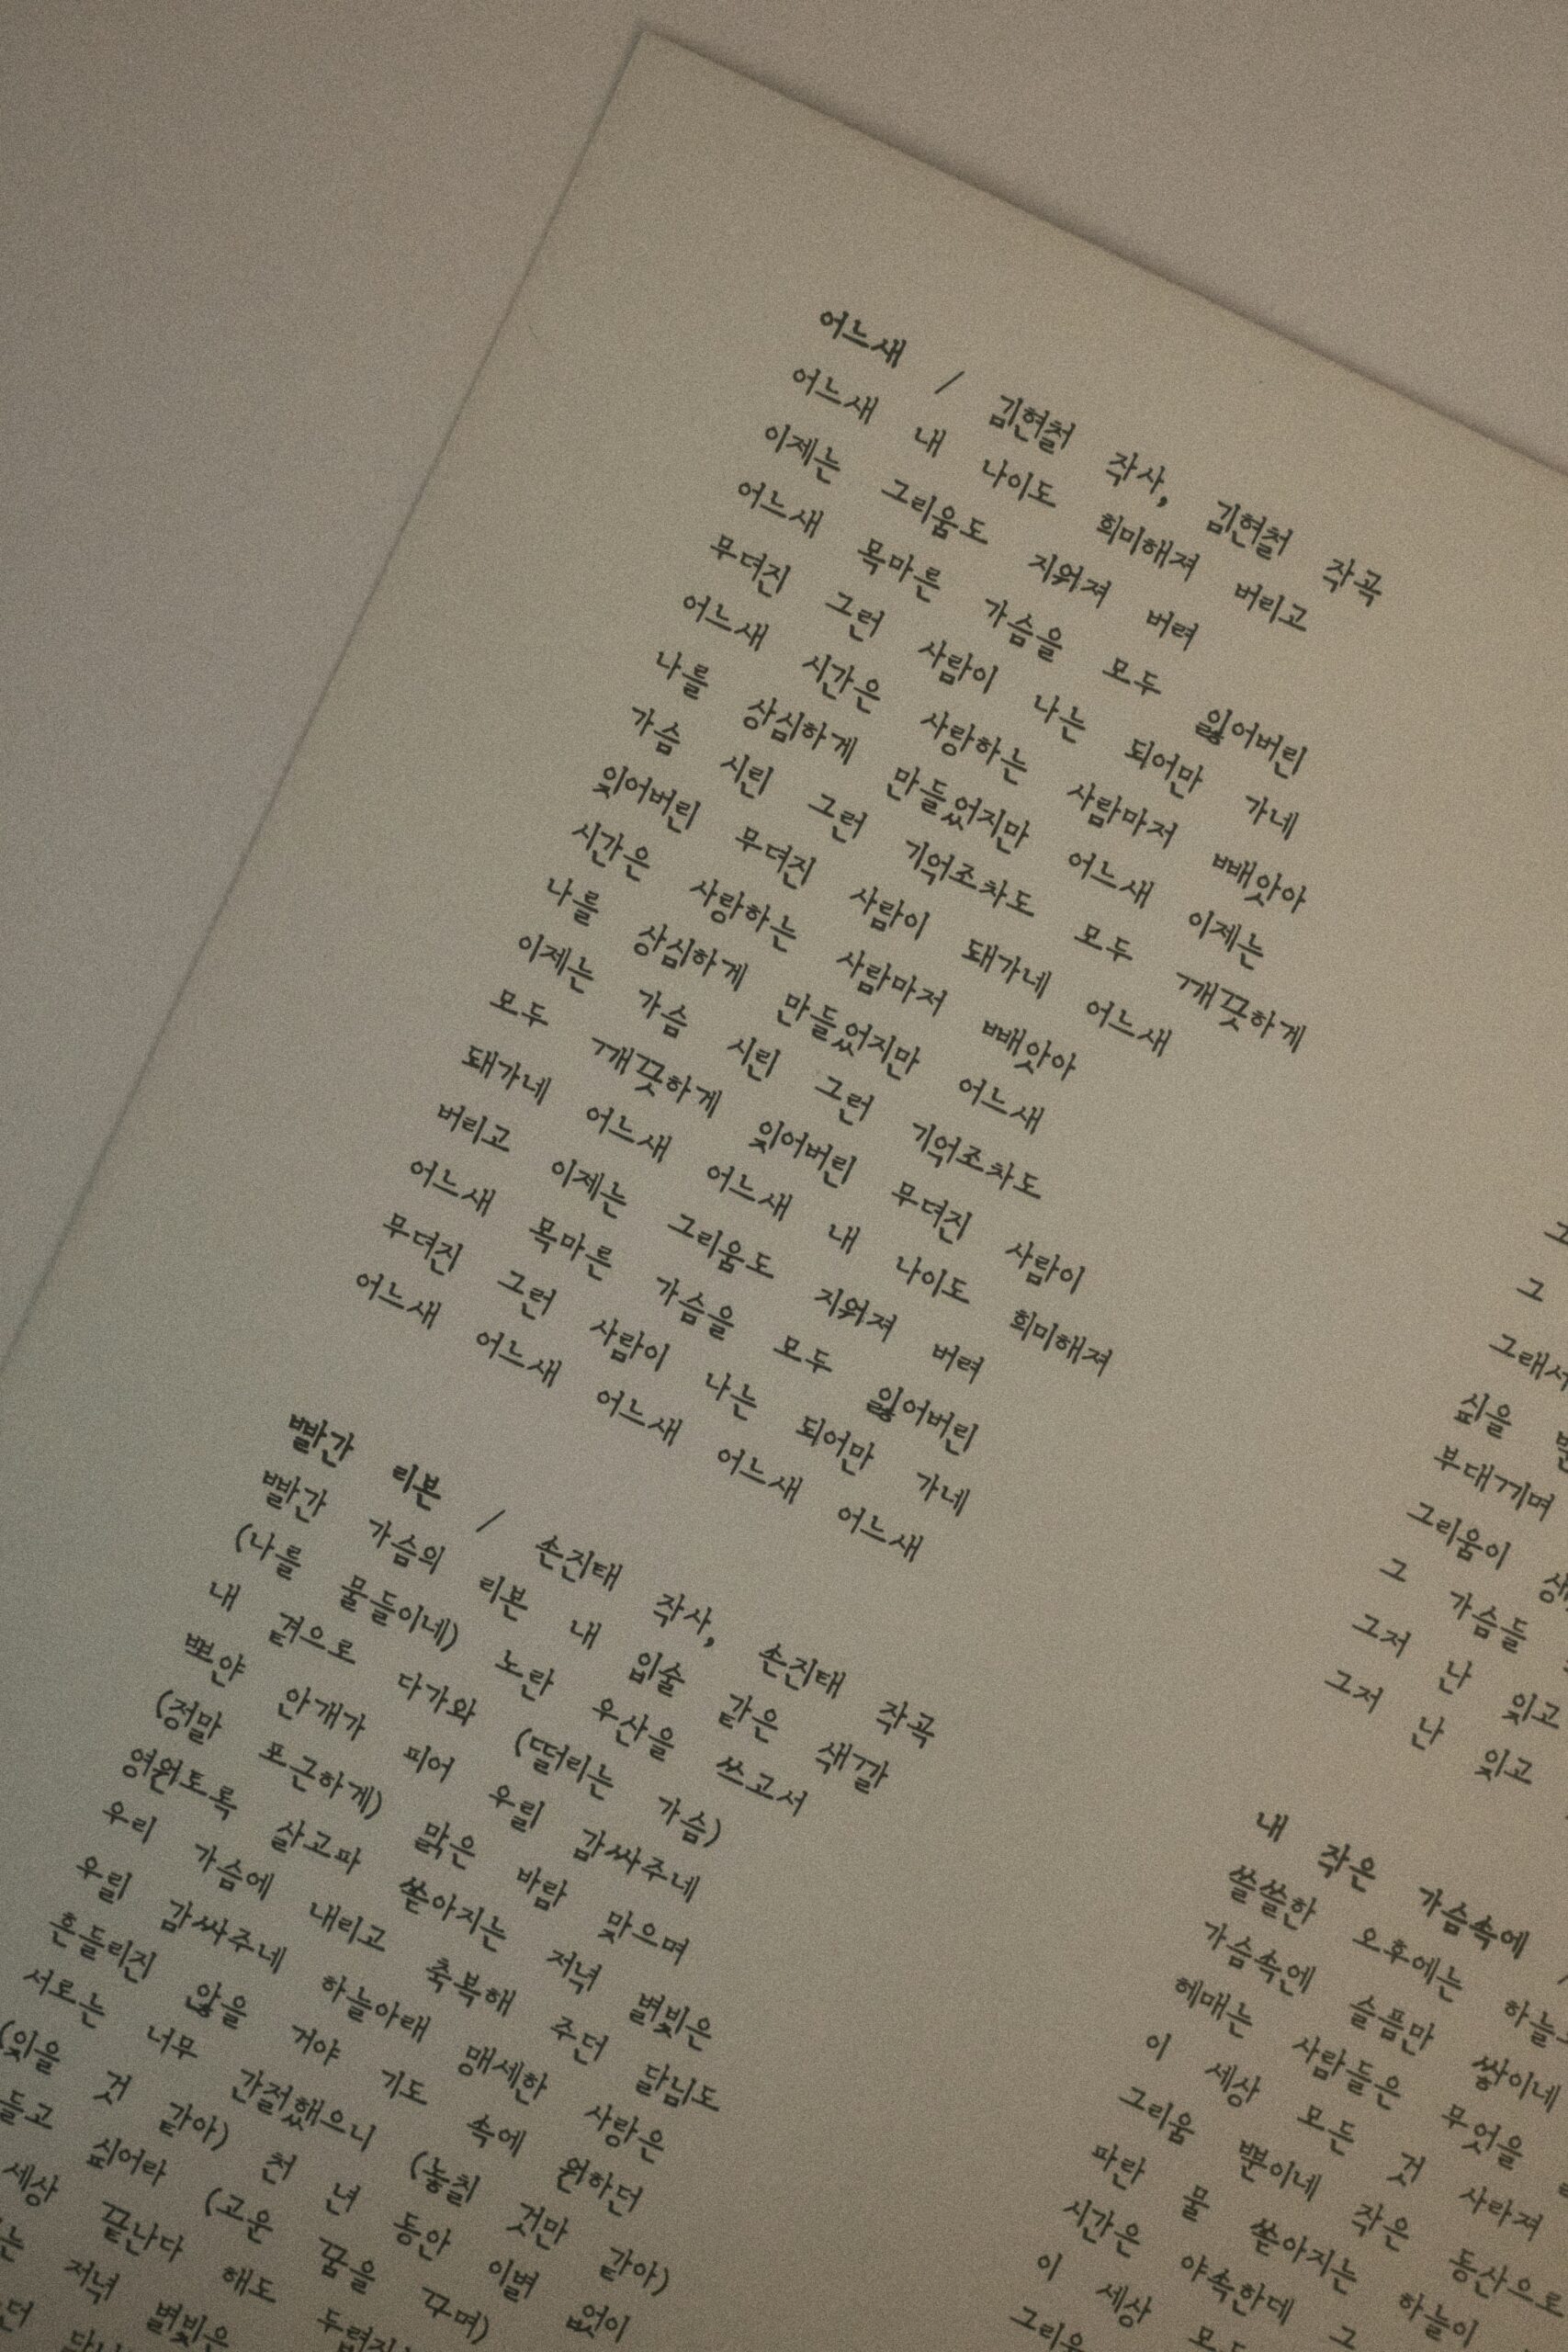 어느새 / 김현철 작사, 김현철 작곡
어느새 내 나이도 희미해져 버리고
이제는 그리움도 지워져 버려
어느새 목마른 가슴을 모두 잃어버린
무뎌진 그런 사람이 나는 되어만 가네
어느새 시간은 사랑하는 사람마저 빼앗아
나를 상심하게 만들었지만 어느새 이제는
가슴 시린 그런 기억조차도 모두 깨끗하게
잊어버린 무뎌진 사람이 돼가네 어느새
시간은 사랑하는 사람마저 빼앗아
나를 상심하게 만들었지만 어느새
이제는 가슴 시린 그런 기억조차도
모두 깨끗하게 잊어버린 무뎌진 사람이
돼가네 어느새 어느새 내 나이도 희미해져
버리고 이제는 그리움도 지워져 버려
어느새 목마른 가슴을 모두 잃어버린
무뎌진 그런 사람이 나는 되어만 가네
어느새 어느새 어느새 어느새 어느새
빨간 리본 / 손진태 작사, 손진태 작곡
빨간 가슴의 리본 내 입술 같은 색깔
(나를 물들이네) 노란 우산을 쓰고서
내 곁으로 다가와 (떨리는 가슴)
뽀얀 안개가 피어 우릴 감싸주네
(정말 포근하게) 맑은 바람 맞으며
영원토록 살고파 쏟아지는 저녁 별빛은
우리 가슴에 내리고 축복해 주던 달님도
우릴 감싸주네 하늘아래 맹세한 사랑은
흔들리진 않을 거야 기도 속에 원하던
서로는 너무 간절했으니 (놓칠 것만 같아)
(있을 것 같아) 천 년 동안 이별 없이
들고 싶어라 (고운 꿈을 꾸며)
세상 끝난다 해도
는 저녁 별빛은
그
그래서
싶을
부대끼며
그리움이
그 가슴들
그저 난 있고
그저 난 있고
내 작은 가슴속에 /
쓸쓸한 오후에는
가슴속엔 슬픔만 쌓이네
헤매는 사람들은 무엇을
이 세상 모든 것 사라져
그리움 뿐이네 작은 동산으로
파란 물 쏟아지는 하늘이
시간은 야속한데 그
이 세상